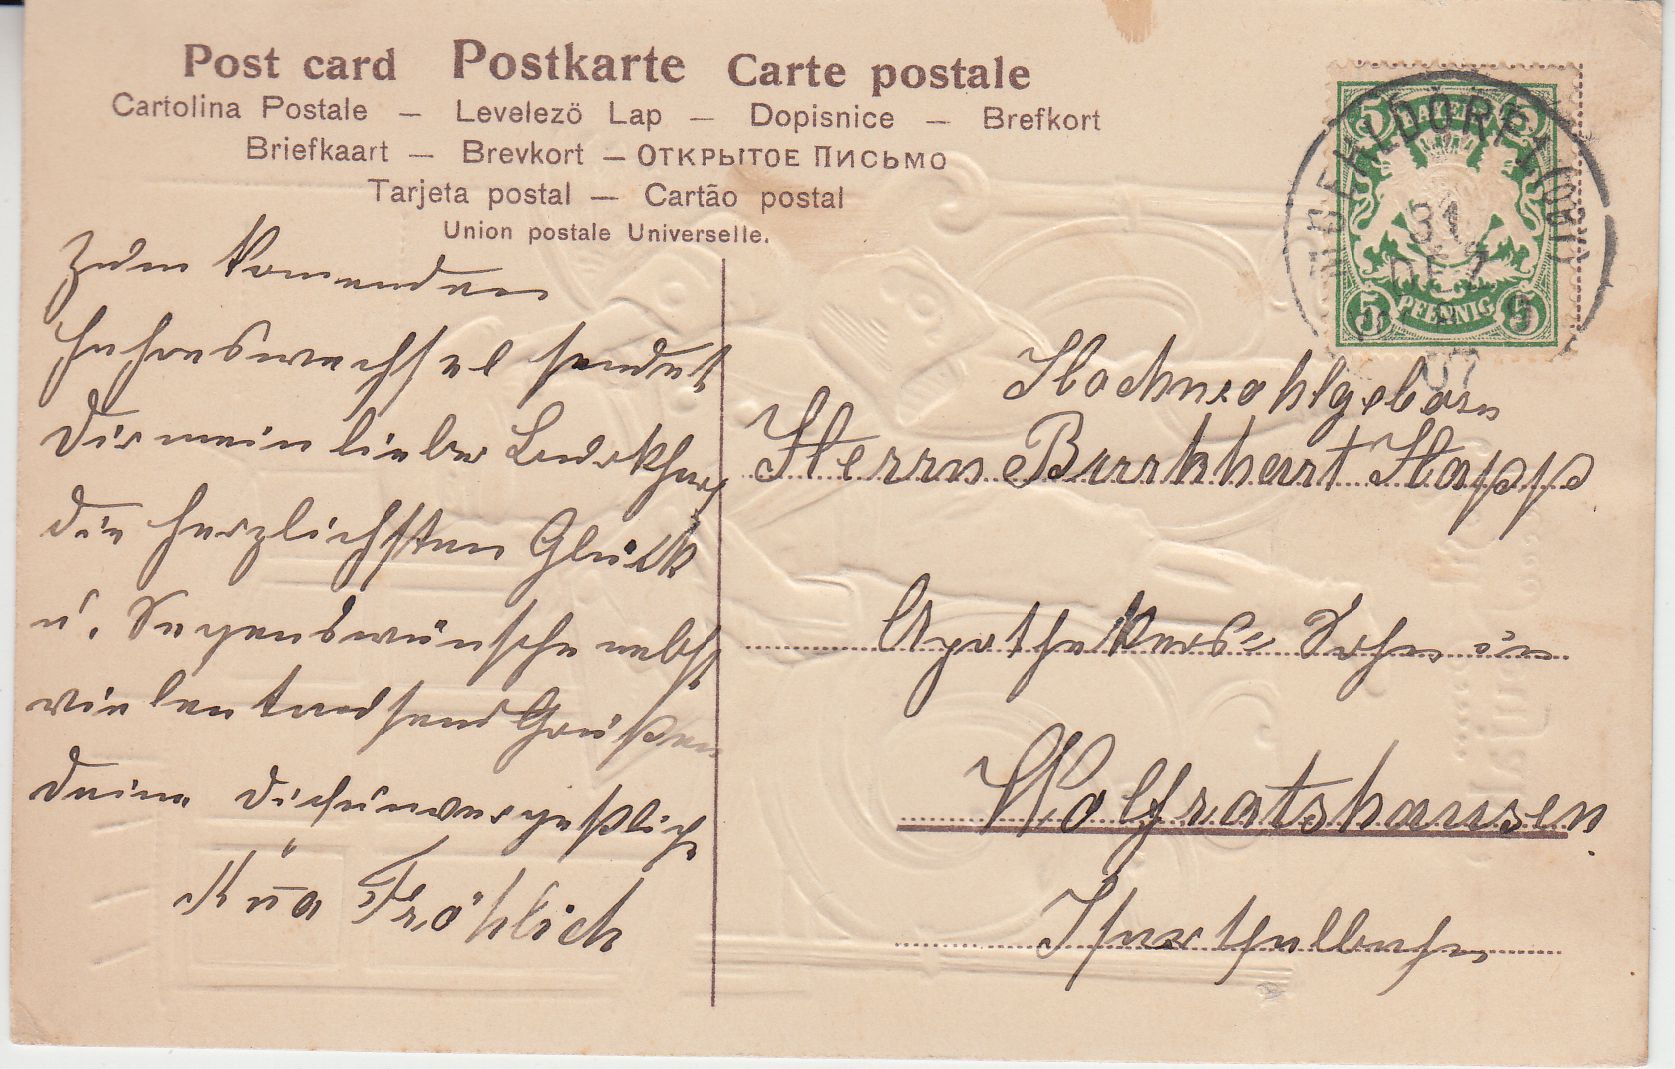 Post card Postkarte Carte postale
Cartolina Postale — Levelezö Lap — Dopisnice — Brefkort
Briefkaart — Brevkort — Открытое Письмо
Tarjeta postal — Cartão postal
Union postale Universelle.
Zum komenden
Jahreswechsel sendet
Dir mein lieber Burkhart
die herzlichsten Glück
u. Segenswünsche nebst
vielen tausend Grüßen
Deine Dich unvergeßlich
Fröhlich
BAYERN
5 PFENNIG 5
31
DEZ
07
Hochwohlgeborn
Herrn Burkhart Happ
Apothekers Sohn in
Wolfratshausen
Isarthalbahn